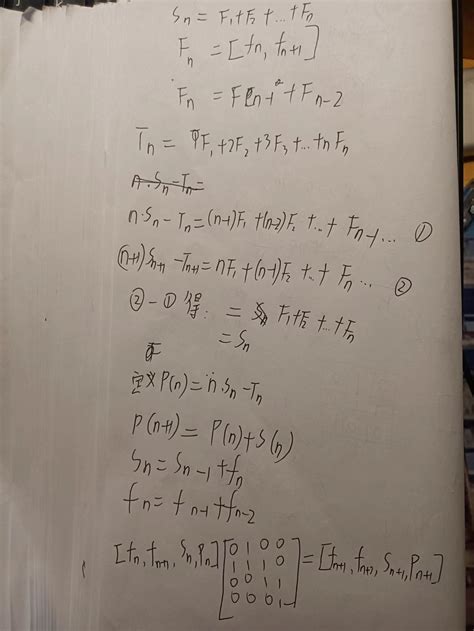 Sn = F1+F2+...+Fn
Fn = [fn, fn+1]
Fn = Fn-1+Fn-2
Tn = 1F1+2F2+3F3+...+nFn
n·Sn-Tn=
n·Sn-Tn=(n-1)F1+(n-2)F2+...+Fn-1... ①
(n+1)Sn+1-Tn+1=nF1+(n-1)F2+...+Fn... ②
②-①得: = F1+F2+...+Fn
=Sn
定义P(n)=n·Sn-Tn
P(n+1)=P(n)+S(n)
Sn=Sn-1+fn
fn=fn-1+fn-2
[fn,fn+1,Sn,Pn][0 1 0 0
1 1 1 0
0 0 1 1
0 0 0 1]=[fn+1,fn+2,Sn+1,Pn+1]